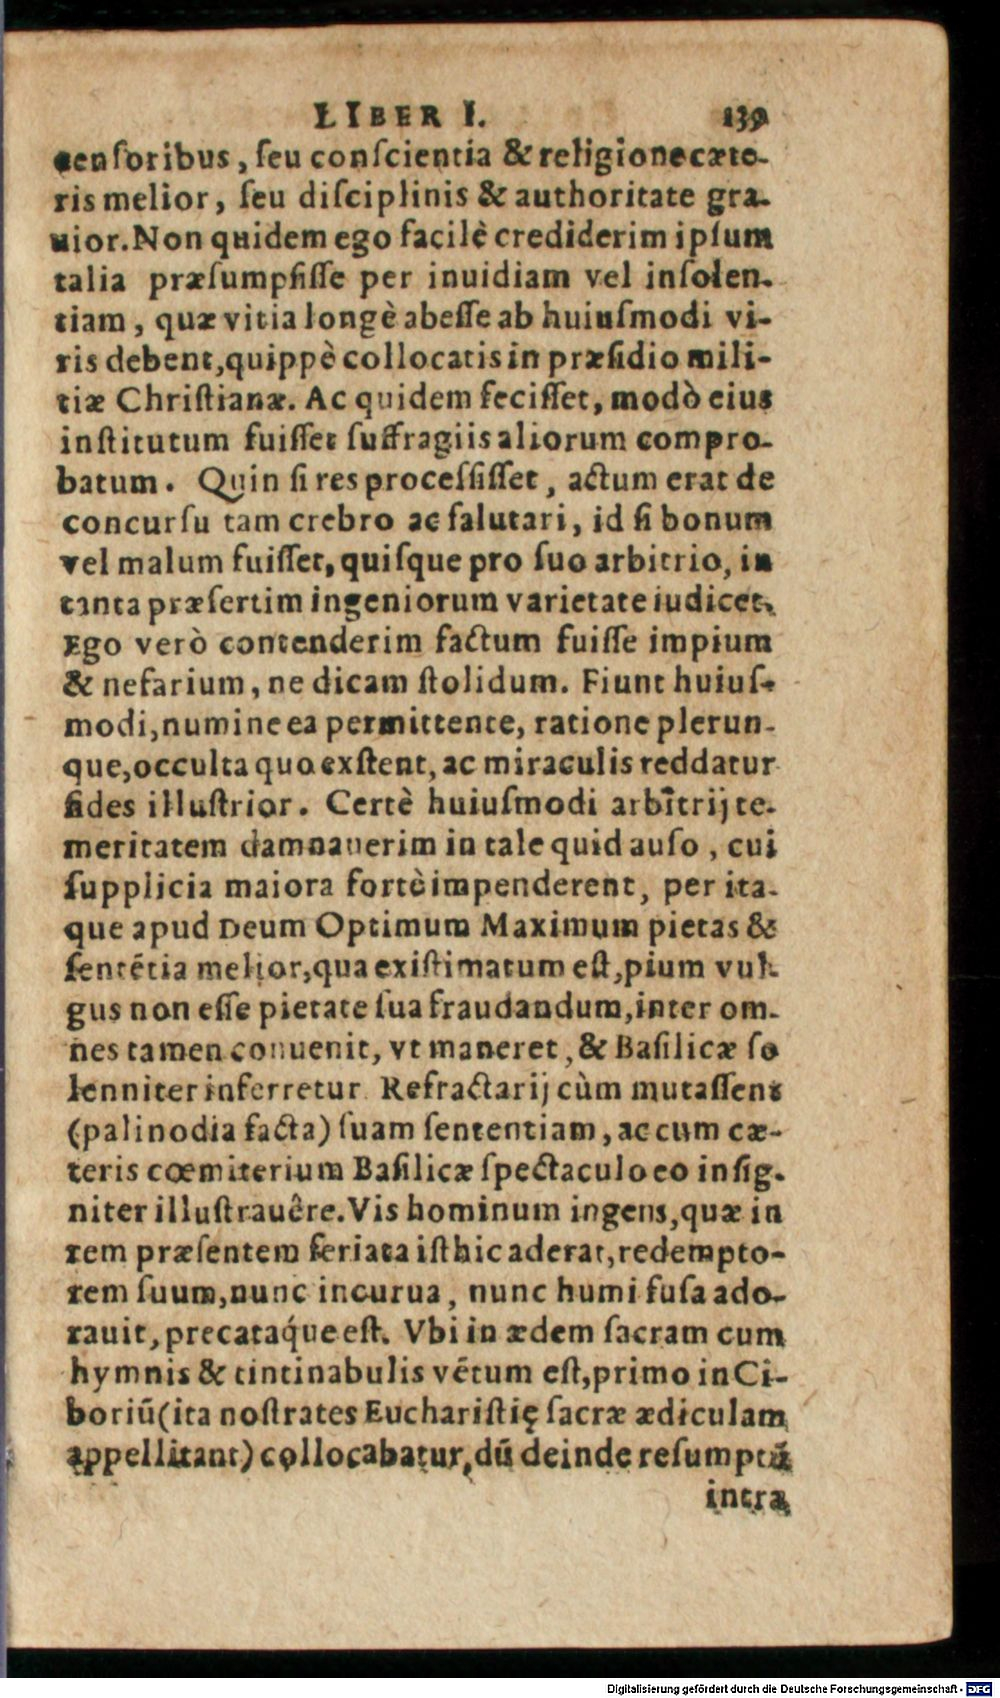 LIBER I. 139
censoribus, seu conscientia & religione cæte-
ris melior, seu disciplinis & authoritate gra-
uior. Non quidem ego facilè crediderim ipsum
talia præsumpsisse per inuidiam vel insolen-
tiam, quæ vitia longè abesse ab huiusmodi vi-
ris debent, quippè collocatis in præsidio mili-
tiæ Christianæ. Ac quidem fecisset, modò eius
institutum fuisset suffragiis aliorum compro-
batum. Quin si res processisset, actum erat de
concursu tam crebro ac salutari, id si bonum
vel malum fuisset, quisque pro suo arbitrio, in
tanta præsertim ingeniorum varietate iudicet.
Ego verò contenderim factum fuisse impium
& nefarium, ne dicam stolidum. Fiunt huius-
modi, numine ea permittente, ratione plerun-
que, occulta quo exstent, ac miraculis reddatur
fides illustrior. Certè huiusmodi arbitrij te-
meritatem damnauerim in tale quid auso, cui
supplicia maiora fortè impenderent, per ita-
que apud Deum Optimum Maximum pietas &
sentẽtia melior, qua existimatum est, pium vul-
gus non esse pietate sua fraudandum, inter om-
nes tamen conuenit, vt maneret, & Basilicæ so
lenniter inferretur Refractarij cùm mutassent
(palinodia facta) suam sententiam, ac cum cæ-
teris cœmiterium Basilicæ spectaculo eo insig-
niter illustrauêre. Vis hominum ingens, quæ in
rem præsentem feriata isthic aderat, redempto-
rem suum, nunc incurua, nunc humi fusa ado-
rauit, precataq́ue est. Vbi in ædem sacram cum
hymnis & tintinabulis vẽtum est, primo in Ci-
boriũ (ita nostrates Eucharistię sacræ ædiculam
appellitant) collocabatur, dũ deinde resumptũ
intra
Digitalisierung gefördert durch die Deutsche Forschungsgemeinschaft - DFG